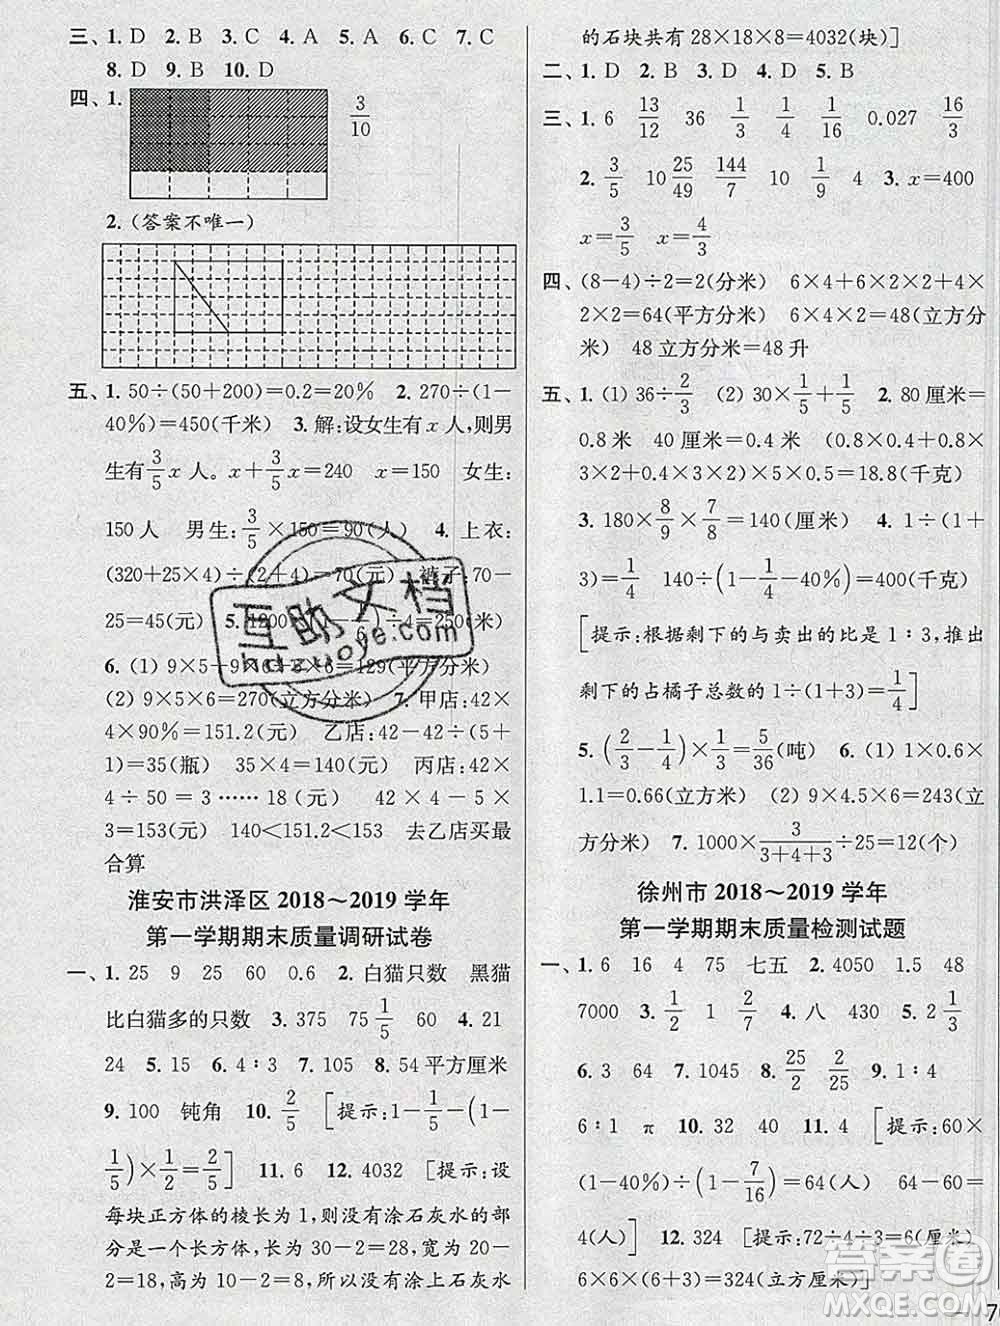 三、1. D 2. D 3. C 4. A 5. A 6. C 7. C
8. D 9. B 10. D
四、1. 3/10
2. (答案不唯一)
五、1. 50÷(50+200)=0.2=20% 2. 270÷(1-
40%)=450(千米) 3. 解:设女生有x人,则男
生有3/5x人。x+3/5x=240 x=150 女生:
150人 男生:3/5×150=90(人) 4. 上衣:
(320+25×4)÷(2+4)=70(元) 裤子:70-
25=45(元) 5. 1200 ÷4=250(米)
6. (1) 9×5+9×6 ×6=129(平方分米)
(2) 9×5×6=270(立方分米) 7. 甲店:42×
4×90%=151.2(元) 乙店:42-42÷(5+
1)=35(瓶) 35×4=140(元) 丙店:42×
4÷50=3……18(元) 42×4-5×
3=153(元) 140<151.2<153 去乙店买最
合算
淮安市洪泽区2018~2019学年
第一学期期末质量调研试卷
一、1. 25 9 25 60 0.6 2. 白猫只数 黑猫
比白猫多的只数 3. 375 75 1/5 60 4. 21
24 5. 15 6. 4∶3 7. 105 8. 54平方厘米
9. 100 钝角 10. 2/5 [提示:1-1/5-(1-
1/5)×1/2=2/5] 11. 6 12. 4032 [提示:设
每块正方体的棱长为1,则没有涂石灰水的部
分是一个长方体,长为30-2=28,宽为20-
2=18,高为10-2=8,所以没有涂上石灰水
的石块共有28×18×8=4032(块)]
二、1. D 2. B 3. D 4. D 5. B
三、1. 6 13/12 36 1/3 1/4 1/16 0.027 16/3
2. 3/5 10 25/49 144/7 10 1/9 4 3. x=400
x=3/5 x=4/3
四、(8-4)÷2=2(分米) 6×4+6×2×2+4×
2×2=64(平方分米) 6×4×2=48(立方分
米) 48立方分米=48升
五、1. (1) 36÷2/3 (2) 30×1/5+1/5 2. 80厘米=
0.8米 40厘米=0.4米 (0.8×0.4+0.8×
3×2+0.4×3×2)×5×0.5=18.8(千克)
3. 180×8/9×7/8=140(厘米) 4. 1÷(1+
3)=1/4 140÷(1-1/4-40%)=400(千克)
[提示:根据剩下的与卖出的比是1∶3,推出
剩下的占橘子总数的1÷(1+3)=1/4]
5. (2/3-1/4)×1/3=5/36(吨) 6. (1) 1×0.6×
1.1=0.66(立方米) (2) 9×4.5×6=243(立
方分米) 7. 1000×3/(3+4+3)÷25=12(个)
徐州市2018~2019学年
第一学期期末质量检测试题
一、1. 6 16 4 75 七五 2. 4050 1.5 48
7000 3. 1/2 1 2/7 4. 八 430 5. 2 1/3
6. 3 64 7. 1045 8. 25/2 2/25 9. 1∶4
6∶1 π 10. 32 40 11. 4 [提示:60×
(1-40%)÷(1-7/16)=64(人) 64-60=
4(人)] 12. 324 [提示:72÷4÷3=6(厘米)
6×6×(6+3)=324(立方厘米)]
互助文档
hdzuoye.com
答案圈
MXQE.COM
— 7